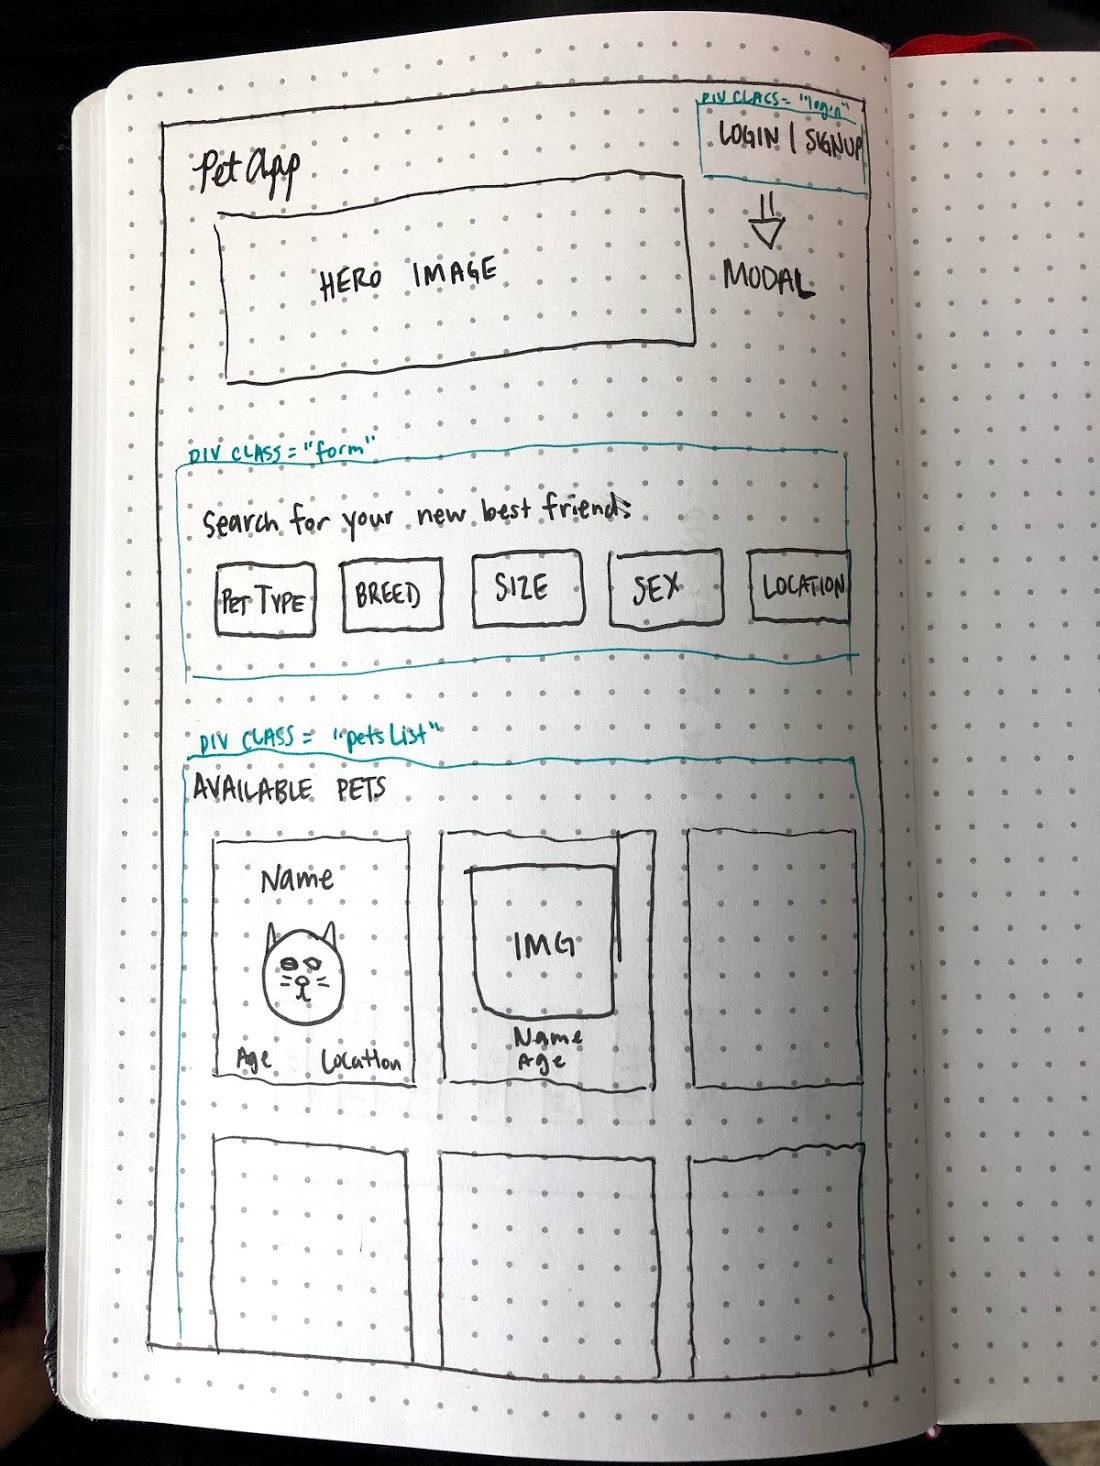 DIV CLASS= "login"
LOGIN | SIGNUP
Pet App
HERO IMAGE
MODAL
DIV CLASS = "form"
Search for your new best friend:
PET TYPE
BREED
SIZE
SEX
LOCATION
DIV CLASS = "petsList"
AVAILABLE PETS
Name
Age Location
IMG
Name
Age